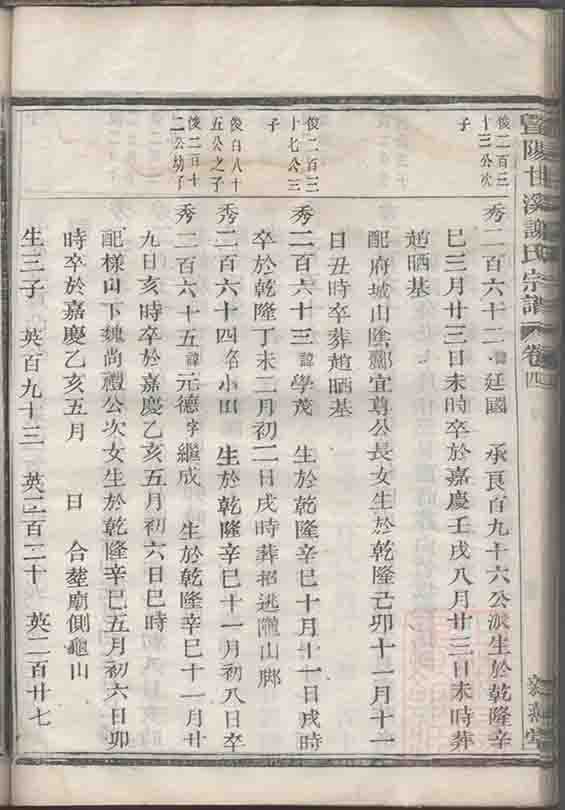 暨陽甘溪謝氏宗譜
卷四
俊二百三
十三公次
子
秀二百六十二 諱廷國 承良百九十六公派生於乾隆辛
巳三月廿三日未時卒於嘉慶壬戌八月廿三日未時葬
趙晒基
配府城山陰酈宜尊公長女生於乾隆己卯十一月十一
日丑時卒葬趙晒基
俊二百三
十七公三
子
秀二百六十三 諱學茂 生於乾隆辛巳十月十一日戌時
卒於乾隆丁未二月初二日戌時葬招逃隴山脚
俊百八十
五公之子
秀二百六十四 名小田 生於乾隆辛巳十一月初八日卒
俊二百十
二公幼子
秀二百六十五 諱元德字繼成 生於乾隆辛巳十一月廿
九日亥時卒於嘉慶乙亥五月初六日巳時
配樣山下魏尚禮公次女生於乾隆辛巳五月初六日卯
時卒於嘉慶乙亥五月 日 合塟廟側龜山
生三子 英百九十三 英二百二十 英二百廿七